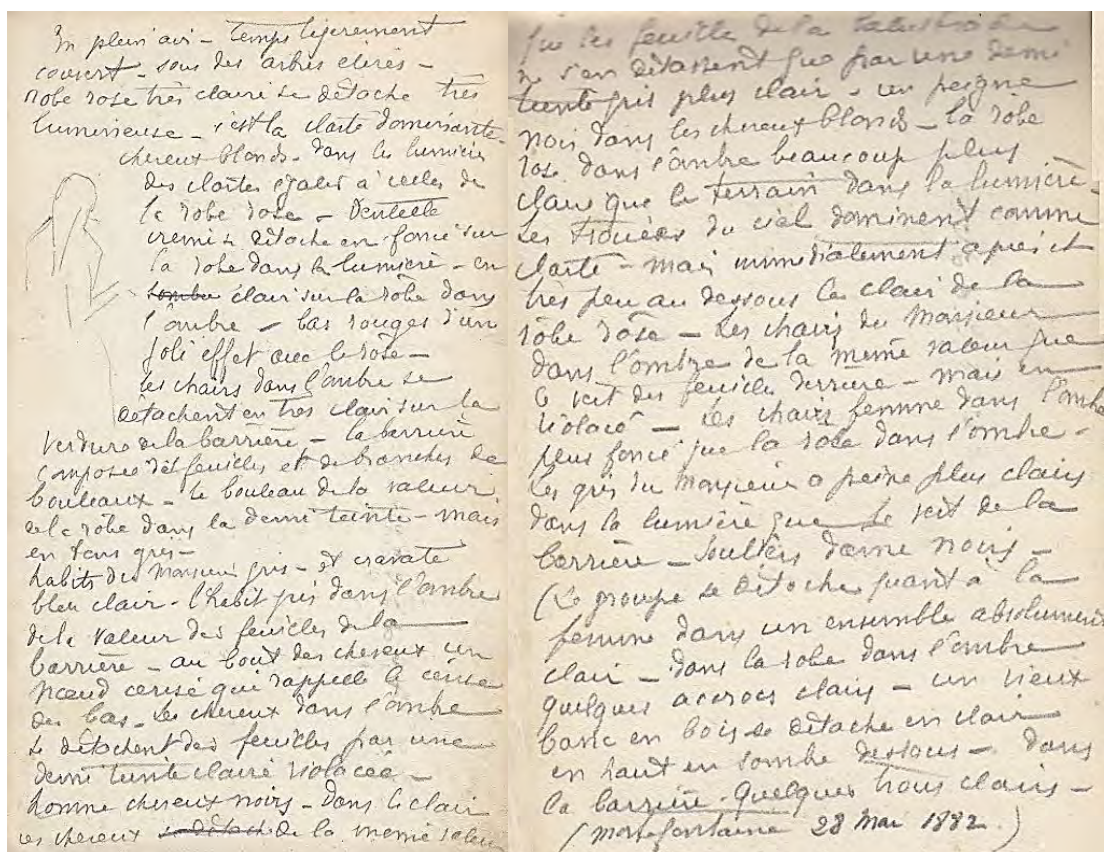 En plein air - temps légèrement
couvert - sous des arbres
robe rose très claire se détache très
lumineuse - c'est la clarté dominante -
cheveux blonds - dans les lumières
des clartés égales à celles de
la robe rose - Dentelle
crème se détache en foncé sur
la robe dans la lumière - en
sombre clair sur la robe dans
l'ombre - bas rouges d'un
joli effet avec le rose -
les chairs dans l'ombre se
détachent en très clair sur la
verdure de la barrière - la barrière
composée des feuilles et de branches de
bouleaux - le bouleau de la valeur
de la robe dans la demi teinte - mais
en tons gris -
habits du Monsieur gris - et cravate
bleu clair - l'habit gris dans l'ombre
de la valeur des feuilles de la
barrière - au bout des cheveux un
nœud cerise qui rappelle le cerise
des bas - les cheveux dans l'ombre
se détachent des feuilles par une
demi teinte claire violacée -
homme cheveux noirs - dans le clair
ces cheveux se détache de la même valeur
que les feuilles de la
ne s'en détachent que par une demi
teinte gris plus clair - un peigne
noir dans les cheveux blonds - la robe
rose dans l'ombre beaucoup plus
claire que le terrain dans la lumière -
Les trouées du ciel dominent comme
clarté - mais immédiatement après et
très peu au dessous les clairs de la
robe rose - Les chairs du Monsieur
dans l'ombre de la même valeur que
le vert des feuilles derrière - mais en
violacé - Les chairs femme dans l'ombre
plus foncé que la robe dans l'ombre -
Les gris du Monsieur à peine plus clairs
dans la lumière que le vert de la
barrière - Souliers dame noirs -
(Le groupe se détache quant à la
femme dans un ensemble absolument
clair - dans la robe dans l'ombre
quelques accrocs clairs - un vieux
banc en bois se détache en clair
en haut en sombre dessous - dans
la barrière quelques trous clairs -
(Mortefontaine 28 Mai 1882.)